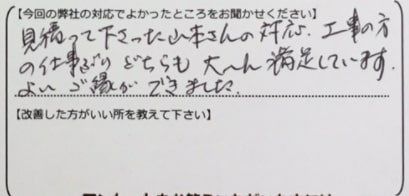 【今回の弊社の対応でよかったところをお聞かせください】
見積って下さった山本さんの対応、工事の方
の仕事ぶり どちらも 大へん 満足しています.
よい ご縁が できました.
【改善した方がいい所を教えて下さい】